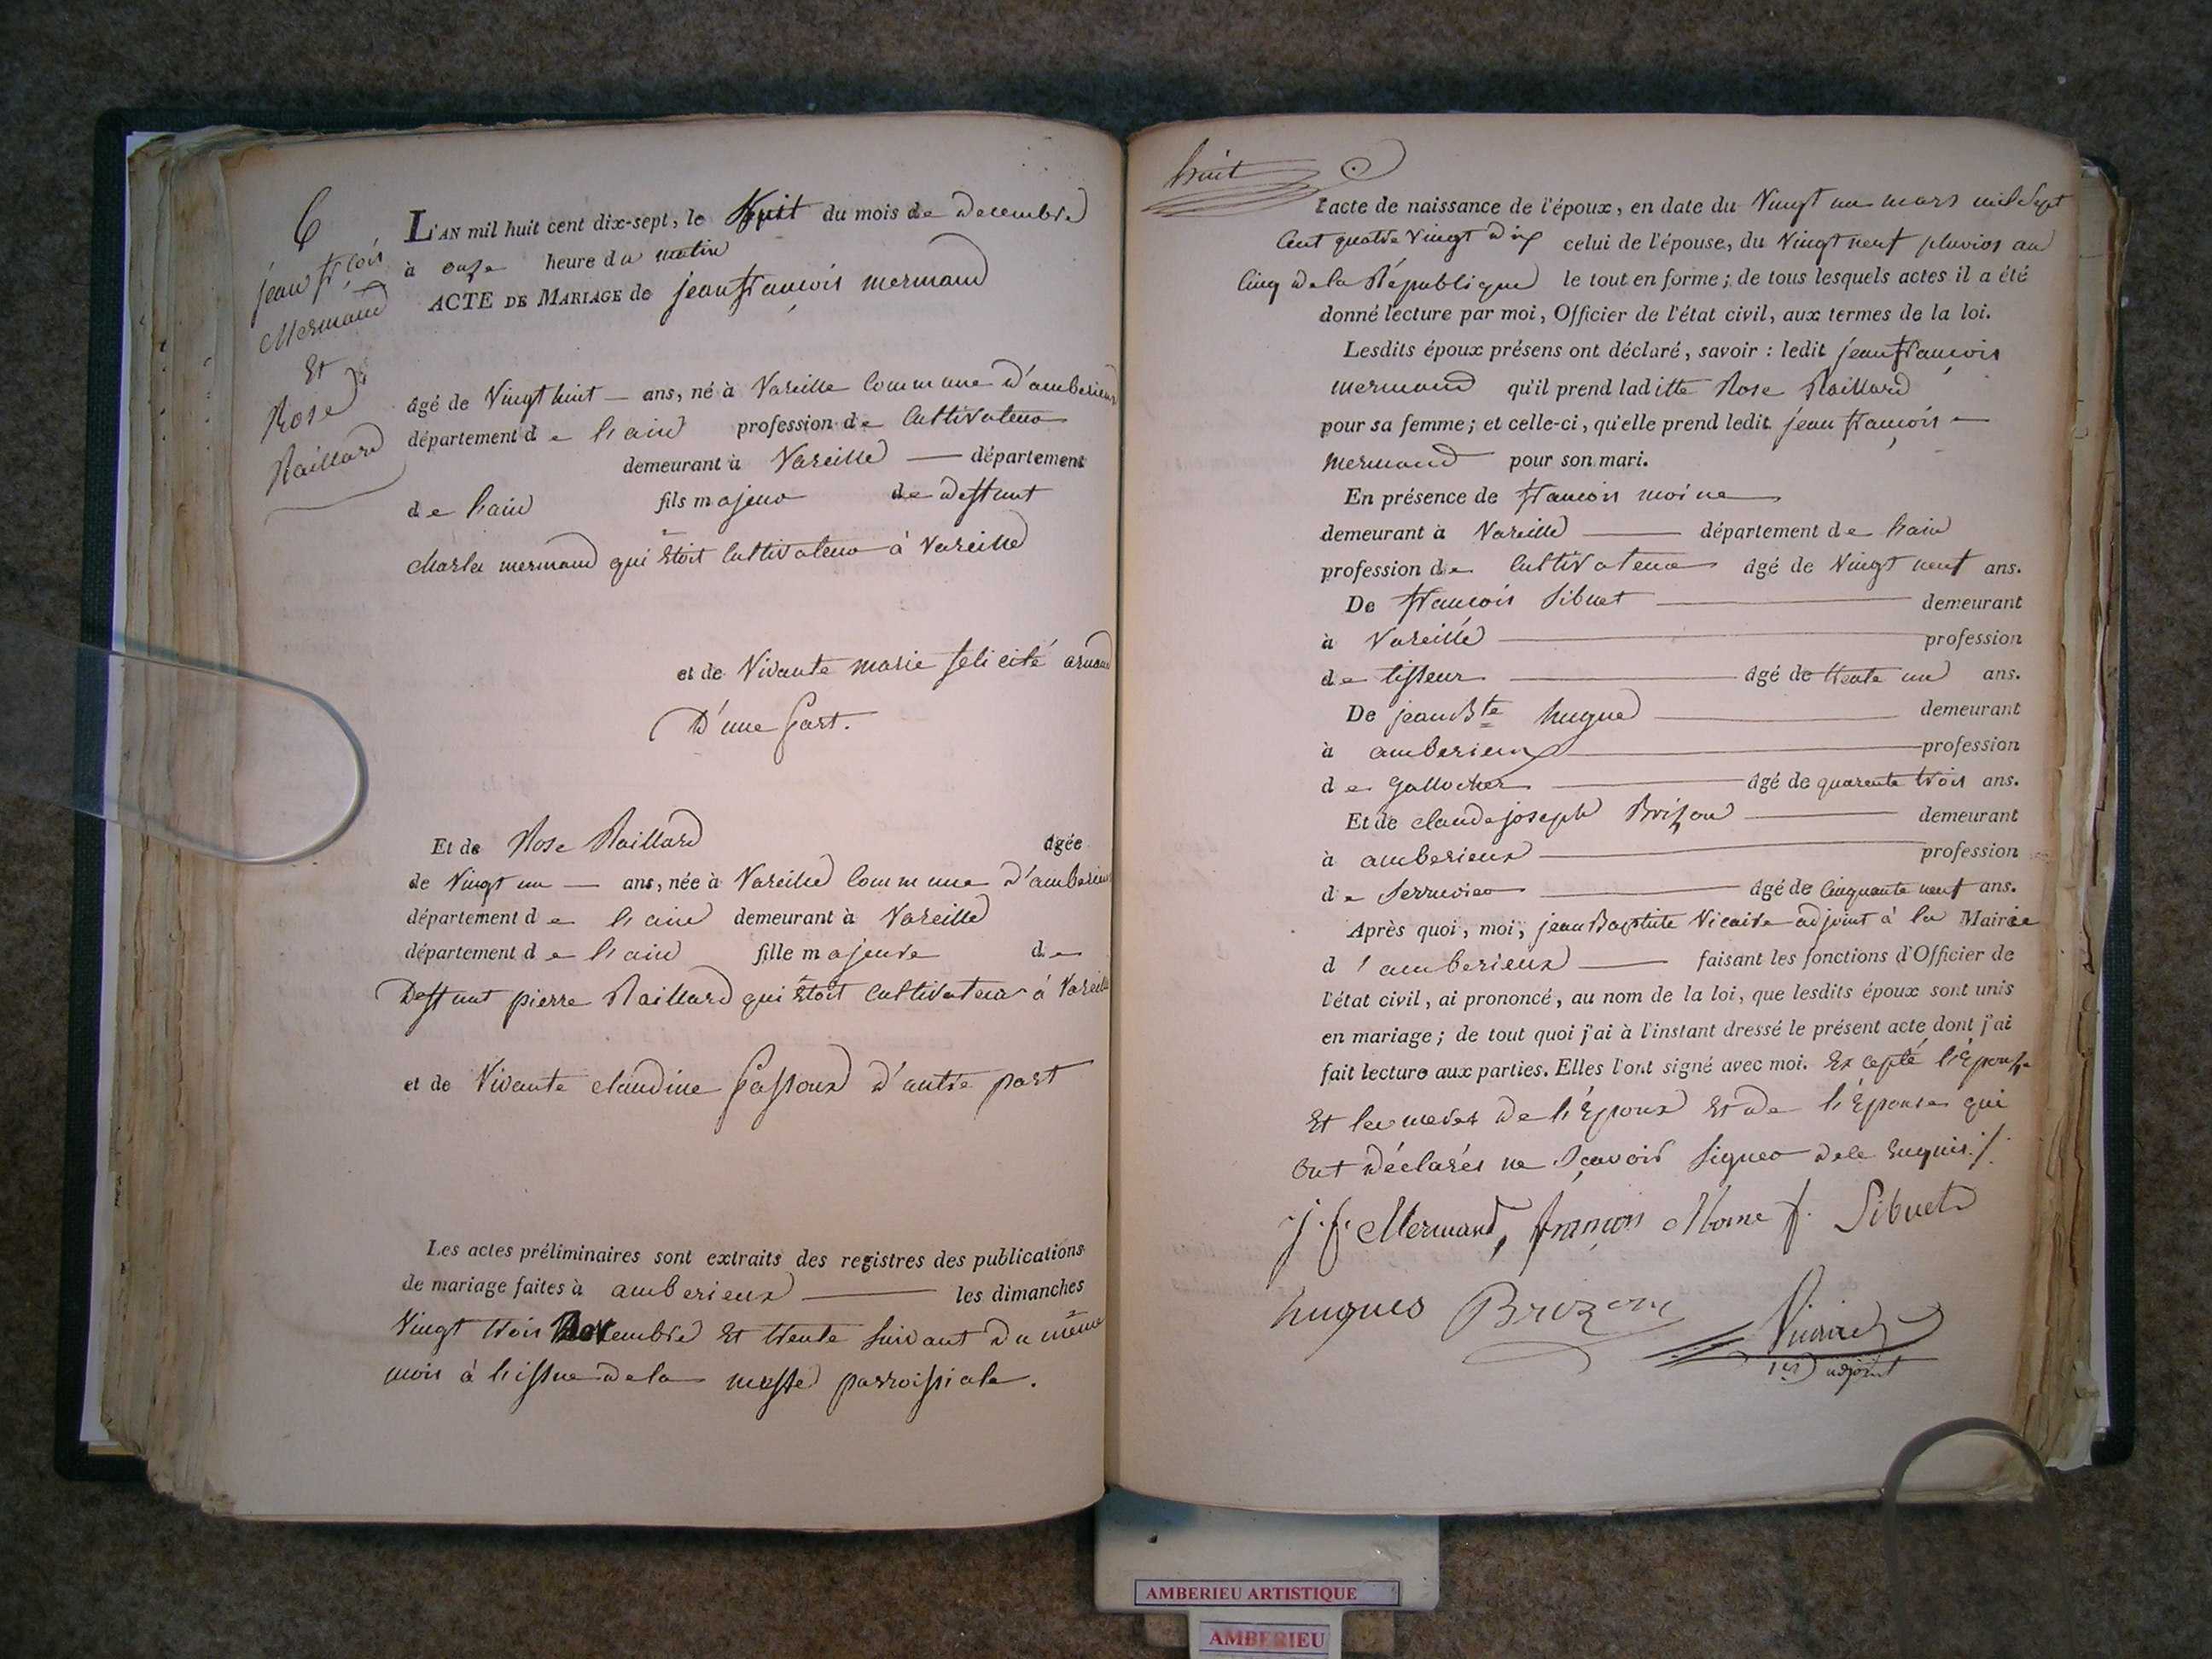 6
jean fçois
Mermand
Et
Rose
Raillard
L'AN mil huit cent dix-sept, le huit du mois de decembre
à onze heure du matin
ACTE DE MARIAGE de jean françois mermand
âgé de Vingt huit — ans, né à Vareille Commune d'amberieux
département de l'ain profession de Cultivateur
demeurant à Vareille — département
de l'ain fils majeur de deffunt
charle mermand qui étoit Cultivateur à Vareille
et de Vivante marie felicité arnaud
D'une part.
Et de Rose Raillard âgée
de Vingt un — ans, née à Vareille Commune d'amberieux
département de l'ain demeurant à Vareille
département de l'ain fille majeure de
Deffunt pierre Raillard qui étoit Cultivateur à Vareille
et de Vivante claudine d'autre part
Les actes préliminaires sont extraits des registres des publications
de mariage faites à amberieux — les dimanches
Vingt trois Novembre Et trente suivant du même
mois à l'issue de la messe parroissiale.
huit
l'acte de naissance de l'époux, en date du Vingt un mars mil Sept
Cent quatre Vingt dix celui de l'épouse, du Vingt neuf pluvios an
Cinq de la République le tout en forme; de tous lesquels actes il a été
donné lecture par moi, Officier de l'état civil, aux termes de la loi.
Lesdits époux présens ont déclaré, savoir : ledit jean françois
mermand qu'il prend laditte Rose Raillard
pour sa femme; et celle-ci, qu'elle prend ledit jean françois —
mermand pour son mari.
En présence de françois moine
demeurant à Vareille — département de l'ain
profession de Cultivateur âgé de Vingt neuf ans.
De françois Sibuet — demeurant
à Vareille — profession
de tisseur — âgé de trente un ans.
De jean Bte hugue — demeurant
à amberieux — profession
de Gallocher — âgé de quarente trois ans.
Et de claude joseph Brizon — demeurant
à amberieux — profession
de Serrurier — âgé de Cinquante neuf ans.
Après quoi, moi, jean Baptiste Vicaire adjoint à la Mairie
d'amberieux — faisant les fonctions d'Officier de
l'état civil, ai prononcé, au nom de la loi, que lesdits époux sont unis
en mariage; de tout quoi j'ai à l'instant dressé le présent acte dont j'ai
fait lecture aux parties. Elles l'ont signé avec moi. Excepté l'Epouse
Et les meres de l'Epoux Et de l'Epouse qui
Ont déclarés ne Sçavoir Signer de ce Enquis ./.
j. f. Mermand, françois Moine f. Sibuet
hugues Brizon Vicaire
1er adjoint
AMBERIEU ARTISTIQUE
AMBERIEU